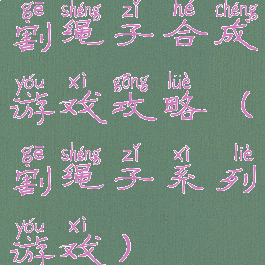 gē shéng zǐ hé chéng
割绳子合成
yóu xì gōng lüè
游戏攻略（
gē shéng zǐ xì liè
割绳子系列
yóu xì
游戏）